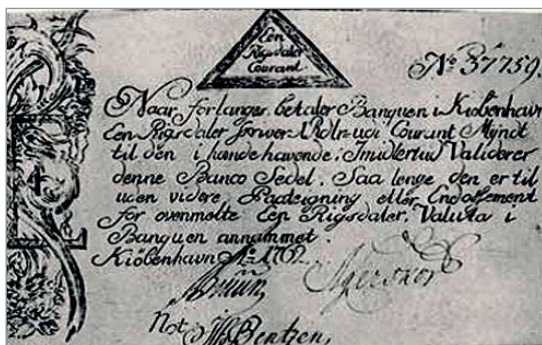 Een
Rigsdaler
Courant
No 37759.
Naar forlanges, betaler Banquen i Kiøbenhavn
Een Rigsdaler udi Courant Mÿndt
til den i hændehavende. Imidlertiid Validerer
denne Banco Sedel. Saa lenge den er til
uden videre Paategning eller Endossement
for ovenmelte Een Rigsdaler, Valuta i
Banquen annammet.
Kiøbenhavn Ao 1762.
Not. Bentzen,